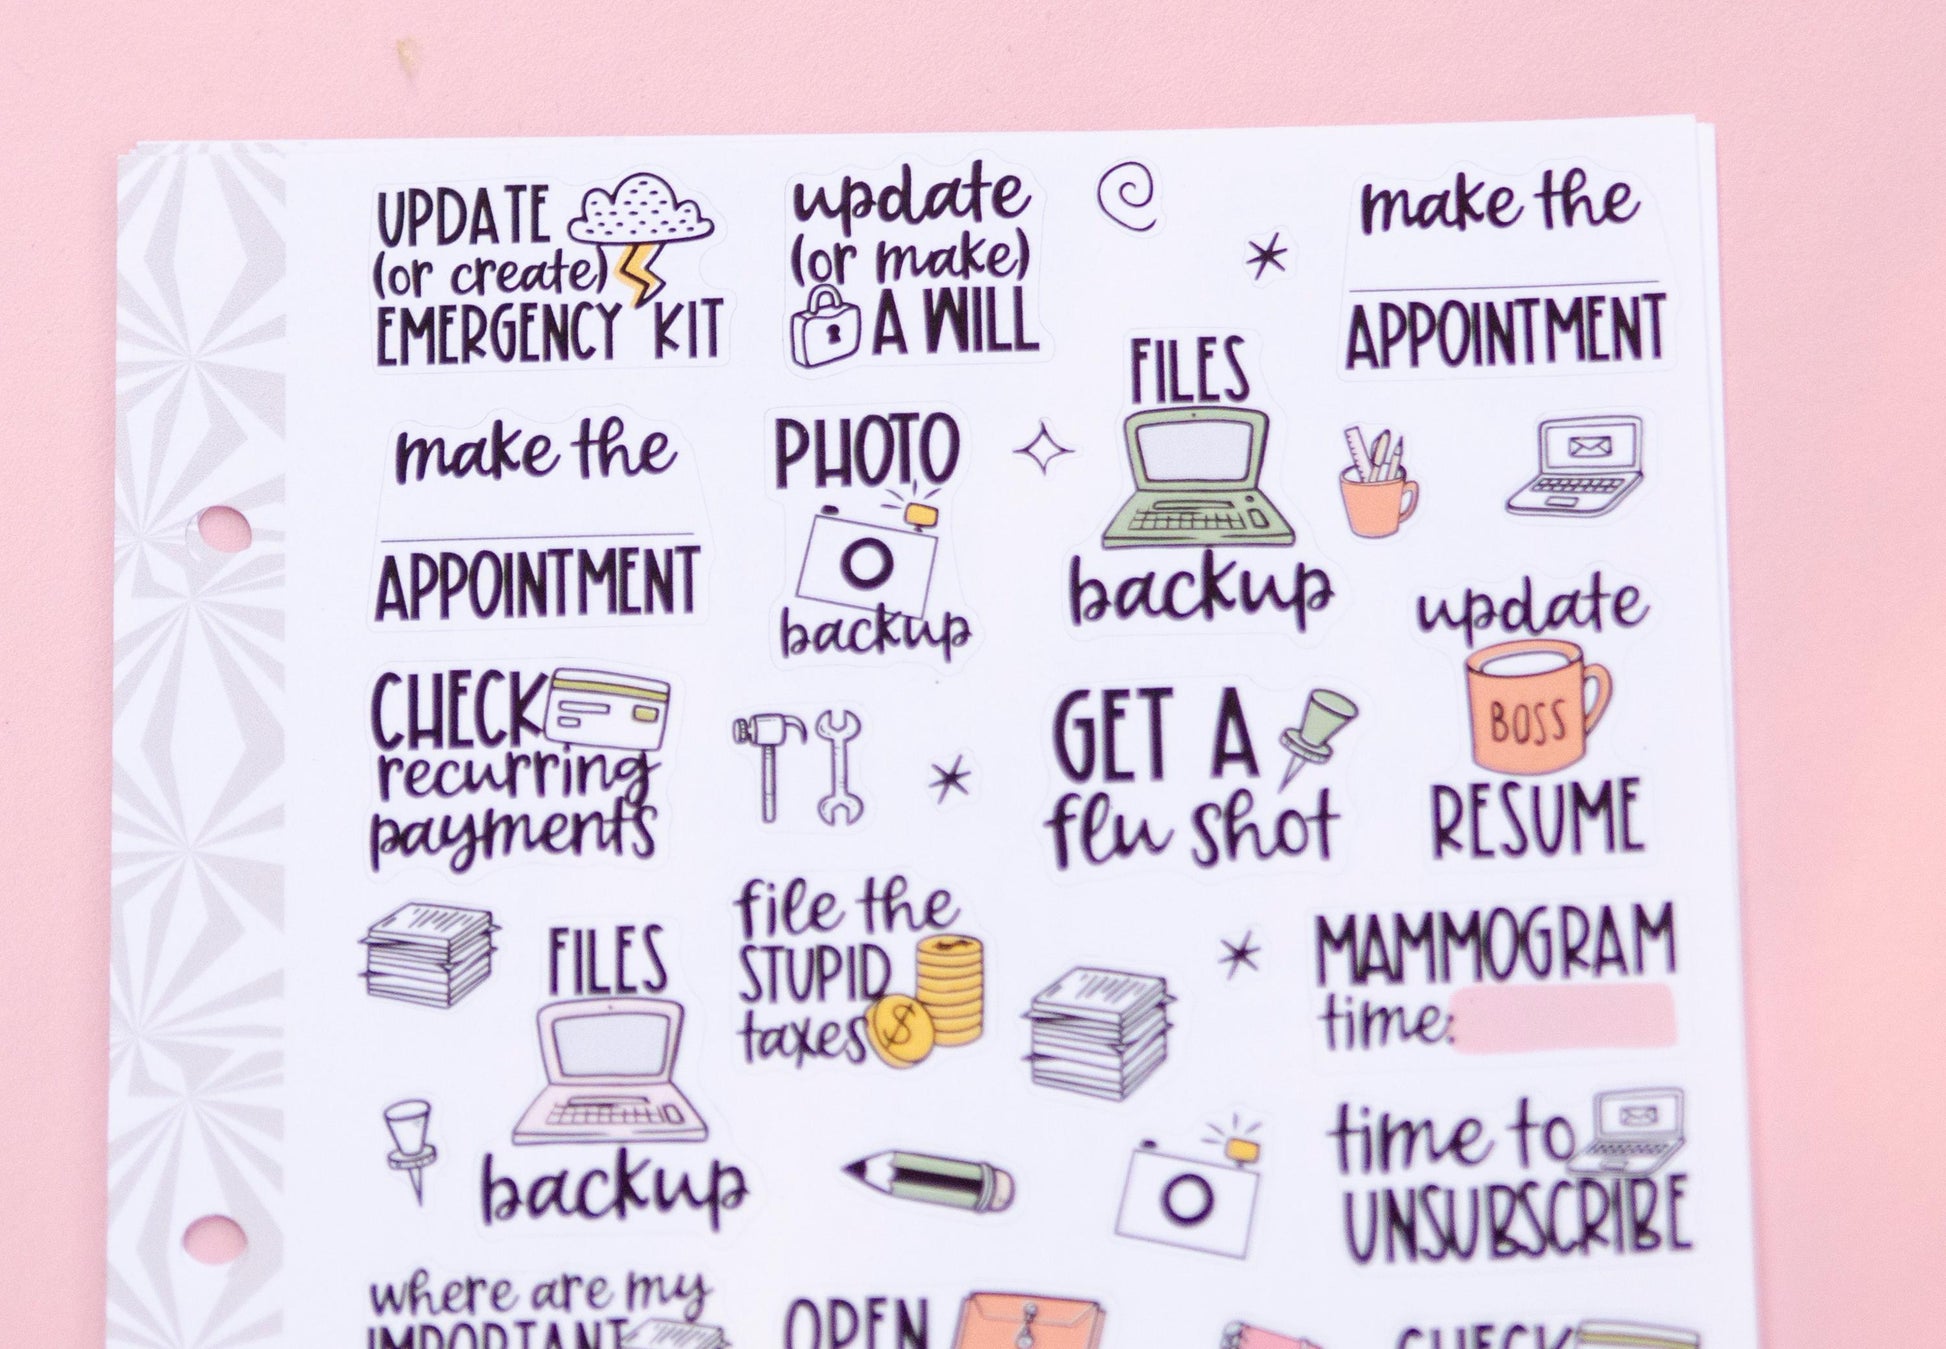 UPDATE
(or create)
EMERGENCY KIT
update
(or make)
A WILL
make the
APPOINTMENT
FILES
backup
make the
APPOINTMENT
PHOTO
backup
update
BOSS
RESUME
CHECK
recurring
payments
GET A
flu shot
file the
STUPID
taxes
$
MAMMOGRAM
time:
FILES
backup
time to
UNSUBSCRIBE
where are my
IMPORTANT
OPEN
CHECK